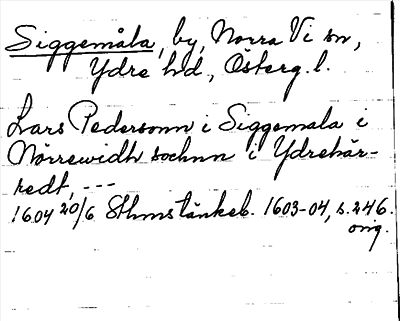 Siggemåla, by, Norra Vi sn,
Ydre hd., Österg. l.
Lars Pedersonn i Siggemala i
Nörrewidh sochnn i Ydrehär-
redt, ---
1604 20/6 Sthms tänkeb. 1603-04, s. 246.
orig.